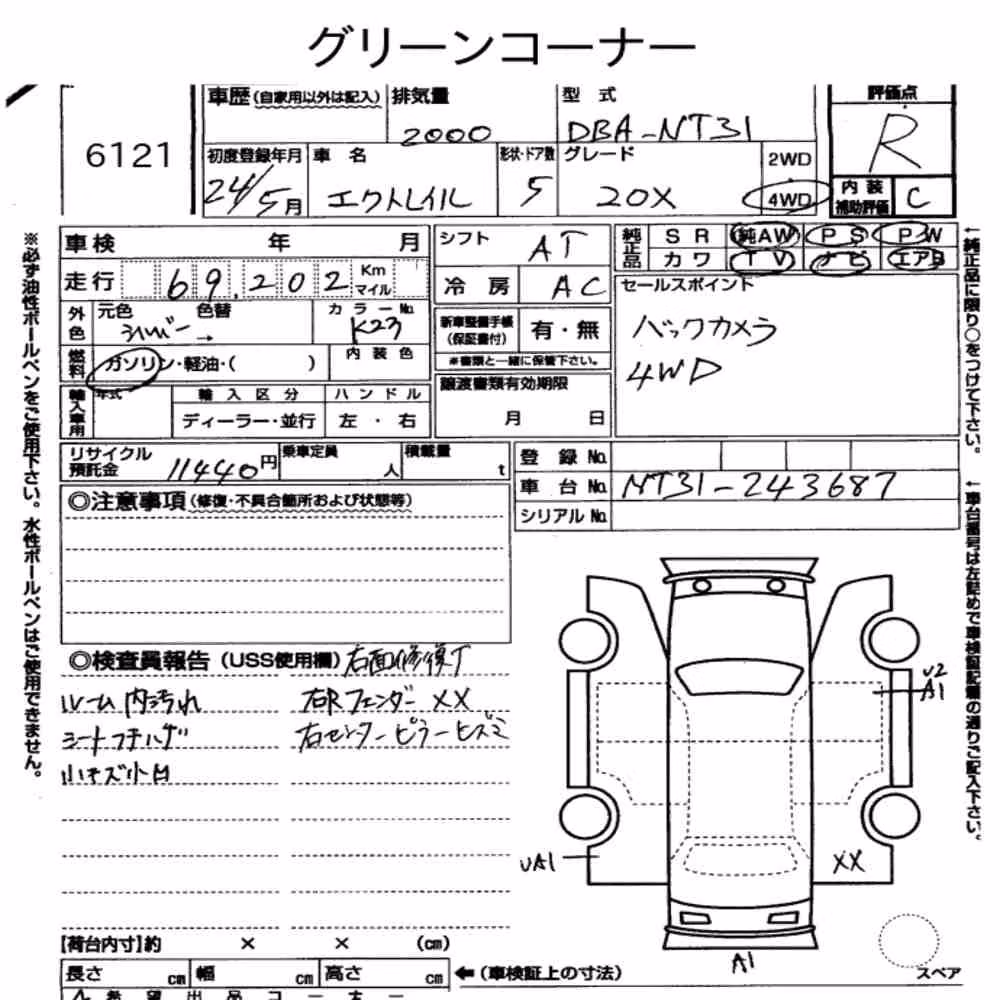 グリーンコーナー
6121
車歴(自家用以外は記入) 排気量 2000
型式 DBA-NT31
評価点 R
初度登録年月 24/5月
車名 エクトレイル
形状・ドア数 5
グレード 20X
2WD
4WD
内装補助評価 C
車検 年 月
シフト AT
純正品 SR 純AW PS PW
カワ TV ナビ エアB
走行 69,202 Km マイル
冷房 AC
セールスポイント
バックカメラ
4WD
外色 元色 色替 シルバー →
カラーNo. K23
新車整備手帳(保証書付) 有・無
※書類と一緒に保管下さい。
燃料 ガソリン・軽油・( )
内装色
譲渡書類有効期限
月 日
輸入車用 年式 輸入区分 ハンドル
ディーラー・並行 左・右
リサイクル預託金 11440円
乗車定員 人
積載量 t
登録No.
車台No. NT31-243687
シリアルNo.
◎注意事項(修復・不具合箇所および状態等)
◎検査員報告(USS使用欄) 右面修復了
ルーム内汚れ 右Rフェンダー XX
シートコゲハゲ 右センターピラーヒズミ
小キズ小凹
U2
A1
UA1
XX
A1
スペア
【荷台内寸】約 × × (cm)
長さ cm 幅 cm 高さ cm ←(車検証上の寸法)
希望出品コーナー
※必ず油性ボールペンをご使用下さい。水性ボールペンはご使用できません。
←純正品に限り○をつけて下さい。
←車台番号は左詰めで車検証記載の通りご記入下さい。